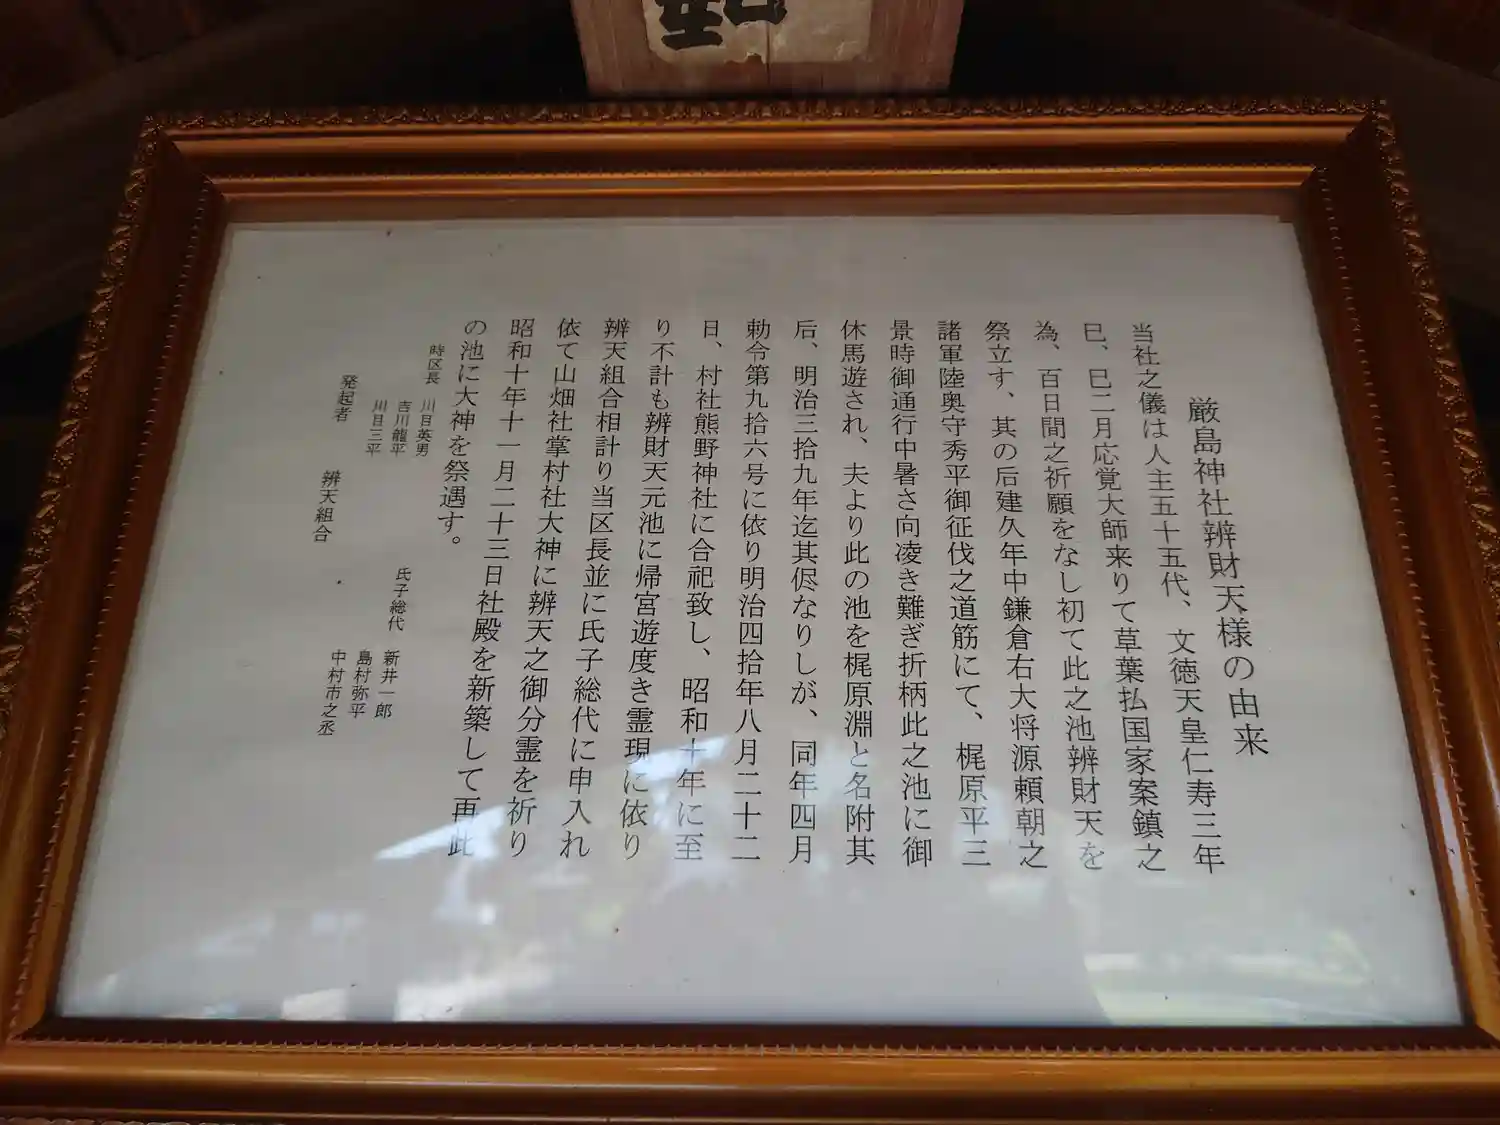 厳島神社辨財天様の由来
当社之儀は人主五十五代、文徳天皇仁寿三年
巳、巳二月応覚大師来りて草葉払国家案鎮之
為、百日間之祈願をなし初て此之池辨財天を
祭立す、其の后建久年中鎌倉右大将源頼朝之
諸軍陸奥守秀平御征伐之道筋にて、梶原平三
景時御通行中暑さ向凌き難ぎ折柄此之池に御
休馬遊され、夫より此の池を梶原淵と名附其
后、明治三拾九年迄其侭なりしが、同年四月
勅令第九拾六号に依り明治四拾年八月二十二
日、村社熊野神社に合祀致し、昭和十年に至
り不計も辨財天元池に帰宮遊度き霊現に依り
辨天組合相計り当区長並に氏子総代に申入れ
依て山畑社掌村社大神に辨天之御分霊を祈り
昭和十年十一月二十三日社殿を新築して再此
の池に大神を祭遇す。
時区長 川目英男
吉川龍平
川目三平
氏子総代 新井一郎
島村弥平
中村市之丞
発起者 辨天組合